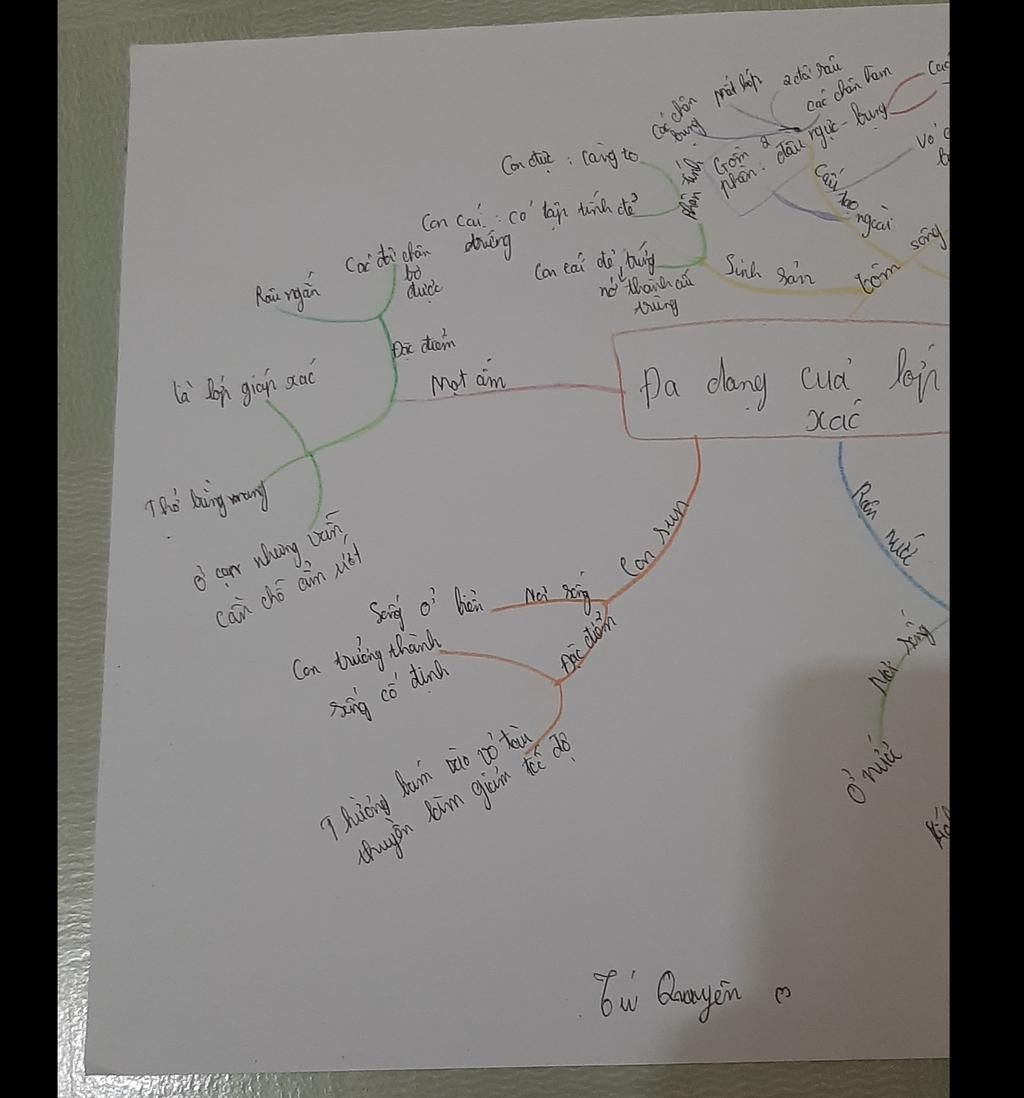 Các chân
bụng
phát lớp
2 đôi râu
các chân hàm
Gồm 2
phần: đầu ngực - bụng
Vỏ
Cấu tạo
ngoài
Tôm sông
Sinh sản
phân tính
Con đực: Càng to
Con cái: có tập tính đẻ
trứng
Con cái đẻ trứng
nở thành ấu
trùng
Các đôi chân
bò
được
Râu ngắn
Đặc điểm
Mọt ẩm
là lớp giáp xác
Thở bằng mang
Ở cạn nhưng vẫn
cần chỗ ẩm ướt
Đa dạng của lớp
xác
Con sun
Nơi sống
Sống ở biển
Đặc điểm
Con trưởng thành
sống cố định
Thường bám vào vỏ tàu
thuyền làm giảm tốc độ
Rận nước
Nơi sống
Ở nước
Tú Quuyên